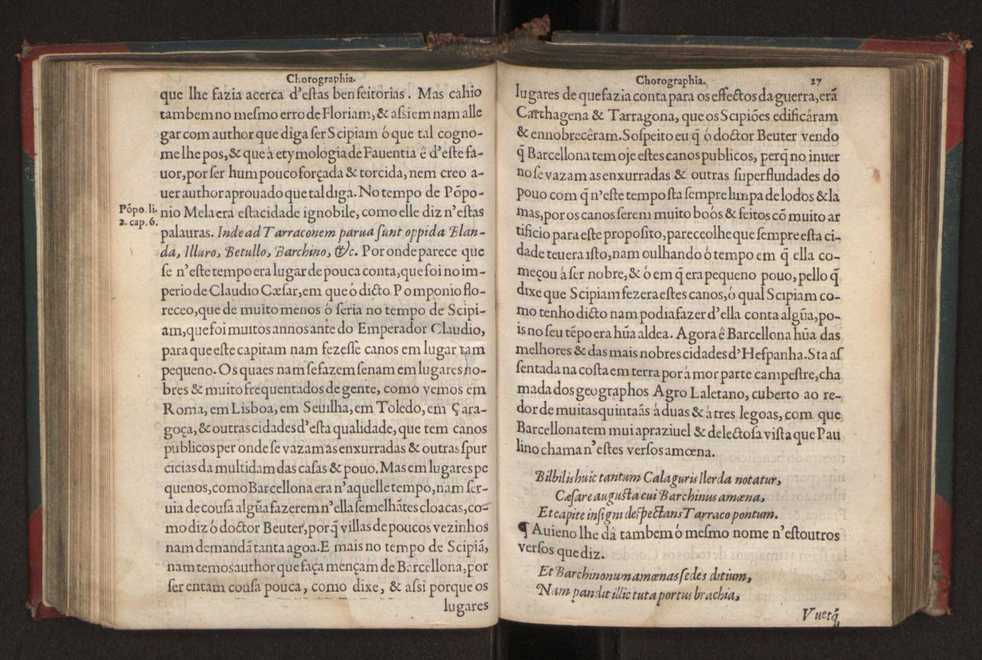 Chorographia.
que lhe fazia acerca d'estas benfeitorias. Mas cahio
tambem no mesmo erro de Floriam, & assi em nam alle
gar com author que diga ser Scipiam ó que tal cogno-
me lhe pos, & que à etymologia de Fauentia é d'este fa-
uor, por ser hum pouco forçada & torcida, nem creo a-
uer author aprouado que tal diga. No tempo de Põpo-
Põpo. li.
2. cap. 6.
nio Mela era esta cidade ignobile, como elle diz n'estas
palauras. Inde ad Tarraconem parua sunt oppida Blan-
da, Illuro, Betullo, Barchino, &c. Por onde parece que
se n'este tempo era lugar de pouca conta, que foi no im-
perio de Claudio Cæsar, em que ó dicto Pomponio flo-
receo, que de muito menos ó seria no tempo de Scipi-
am, que foi muitos annos ante do Emperador Claudio,
para que este capitam nam fezesse canos em lugar tam
pequeno. Os quaes nam se fazem senam em lugares no-
bres & muito frequentados de gente, como vemos em
Roma, em Lisboa, em Seuilha, em Toledo, em Çara-
goça, & outras cidades d'esta qualidade, que tem canos
publicos per onde se vazam as enxurradas & outras spur
cicias da multidam das casas & pouo. Mas em lugares pe
quenos, como Barcellona era n'aquelle tempo, nam ser-
uia de cousa algũa fazerem n'ella semelhãtes cloacas, co-
mo diz ó doctor Beuter, porq̃ villas de poucos vezinhos
nam demandã tanta agoa. E mais no tempo de Scipiã,
nam temos author que faça mençam de Barcellona, por
ser entam cousa pouca, como dixe, & assi porque os
lugares
Chorographia. 27
lugares de que fazia conta para os effectos da guerra, erã
Carthagena & Tarragona, que os Scipiões edificáram
& ennobrecêram. Sospeito eu q̃ ó doctor Beuter vendo
q̃ Barcellona tem oje estes canos publicos, perq̃ no inuer
no se vazam as enxurradas & outras superfluidades do
pouo com q̃ n'este tempo sta sempre limpa de lodos & la
mas, por os canos serem muito boós & feitos cõ muito ar
tificio para este proposito, pareceolhe que sempre esta ci-
dade teuera isto, nam oulhando ó tempo em q̃ ella co-
meçou à ser nobre, & ó em q̃ era pequeno pouo, pello q̃
dixe que Scipiam fezera estes canos, ó qual Scipiam co-
mo tenho dicto nam podia fazer d'ella conta algũa, po-
is no seu tẽpo era hũa aldea. Agora ê Barcellona hũa das
melhores & das mais nobres cidades d'Hespanha. Sta as
sentada na costa em terra por á mor parte campestre, cha
mada dos geographos Agro Laletano, cuberto ao re-
dor de muitas quintaãs à duas & à tres legoas, com que
Barcellona tem mui apraziuel & delectosa vista que Pau
lino chama n'estes versos amœna.
Bilbilis huic tantum Calaguris Ilerda notatur,
Cæsare augusta cui Barchinus amœna,
Et capite insigni despectans Tarraco pontum.
¶ Auieno lhe dá tambem ó mesmo nome n'estoutros
versos que diz.
Et Barchinonum amœnas sedes ditium,
Nam pandit illic tuta portus brachia,
Vuetq̃